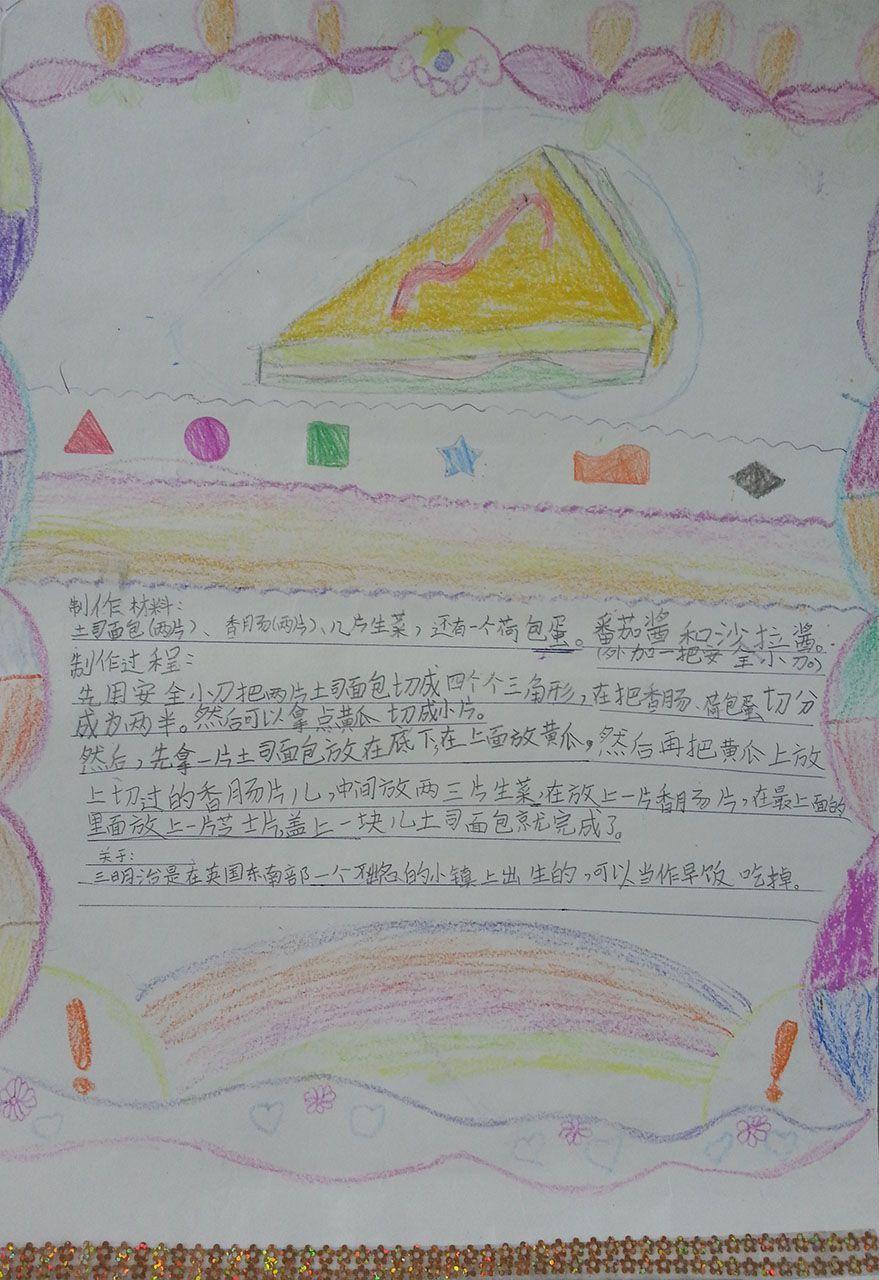 制作材料：
土司面包(两片)、香肠(两片)、几片生菜，还有一个荷包蛋。番茄酱和沙拉酱。
(外加一把安全小刀。)
制作过程：
先用安全小刀把两片土司面包切成四个个三角形，在把香肠、荷包蛋切分
成为两半。然后可以拿点黄瓜切成小片。
然后，先拿一片土司面包放在底下，在上面放黄瓜，然后再把黄瓜上放
上切过的香肠片儿，中间放两三片生菜，在放上一片香肠片，在最上面的
里面放上一片芝士片，盖上一块儿土司面包就完成了。
关于：
三明治是在英国东南部一个不出名的小镇上出生的，可以当作早饭吃掉。